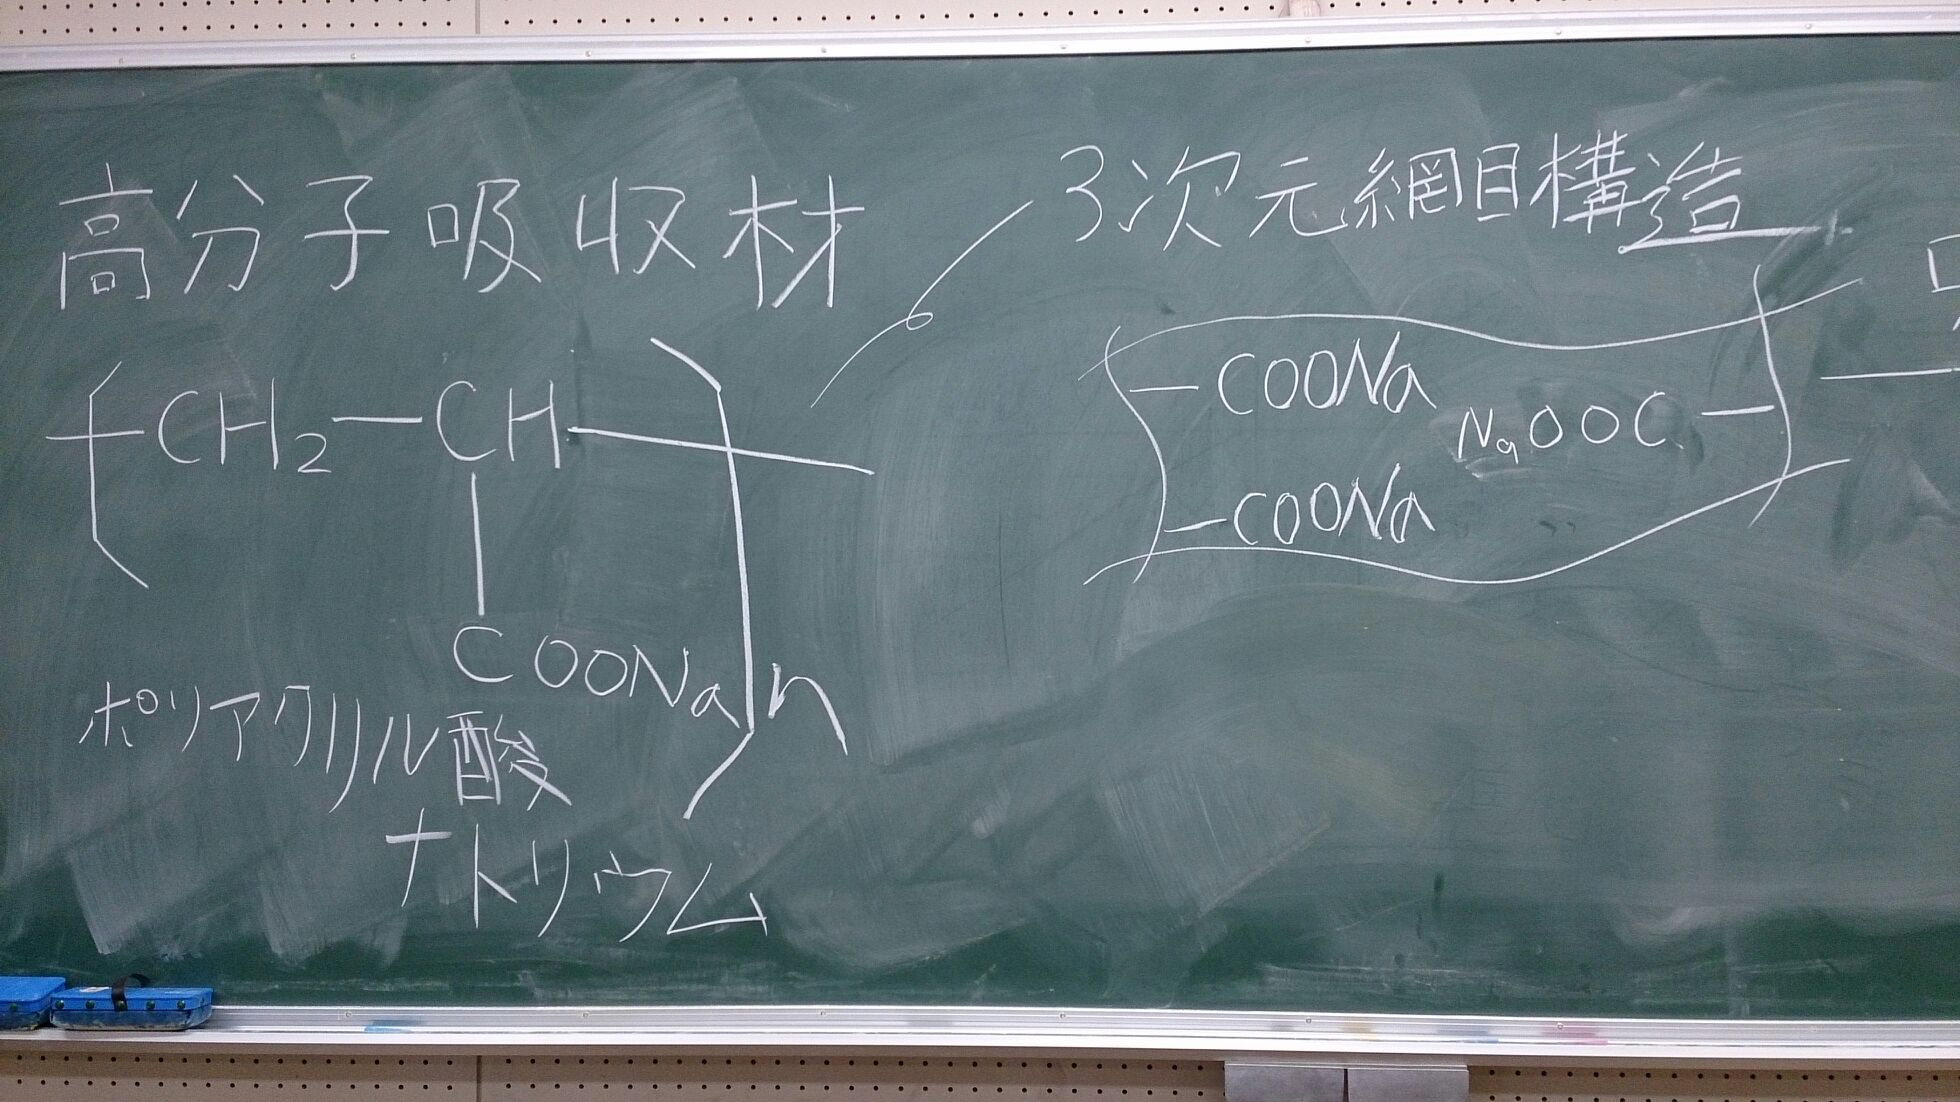 高分子吸収材
CH2-CH
COONa
n
ポリアクリル酸
ナトリウム
3次元網目構造
-COONa
NaOOC-
-COONa